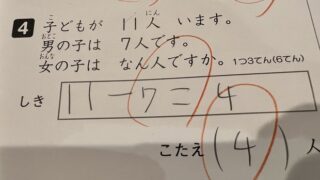 4 子どもが 11人 います。
男の子は 7人です。
女の子は なん人ですか。1つ3てん(6てん)
しき 11-7=4
こたえ (4) 人